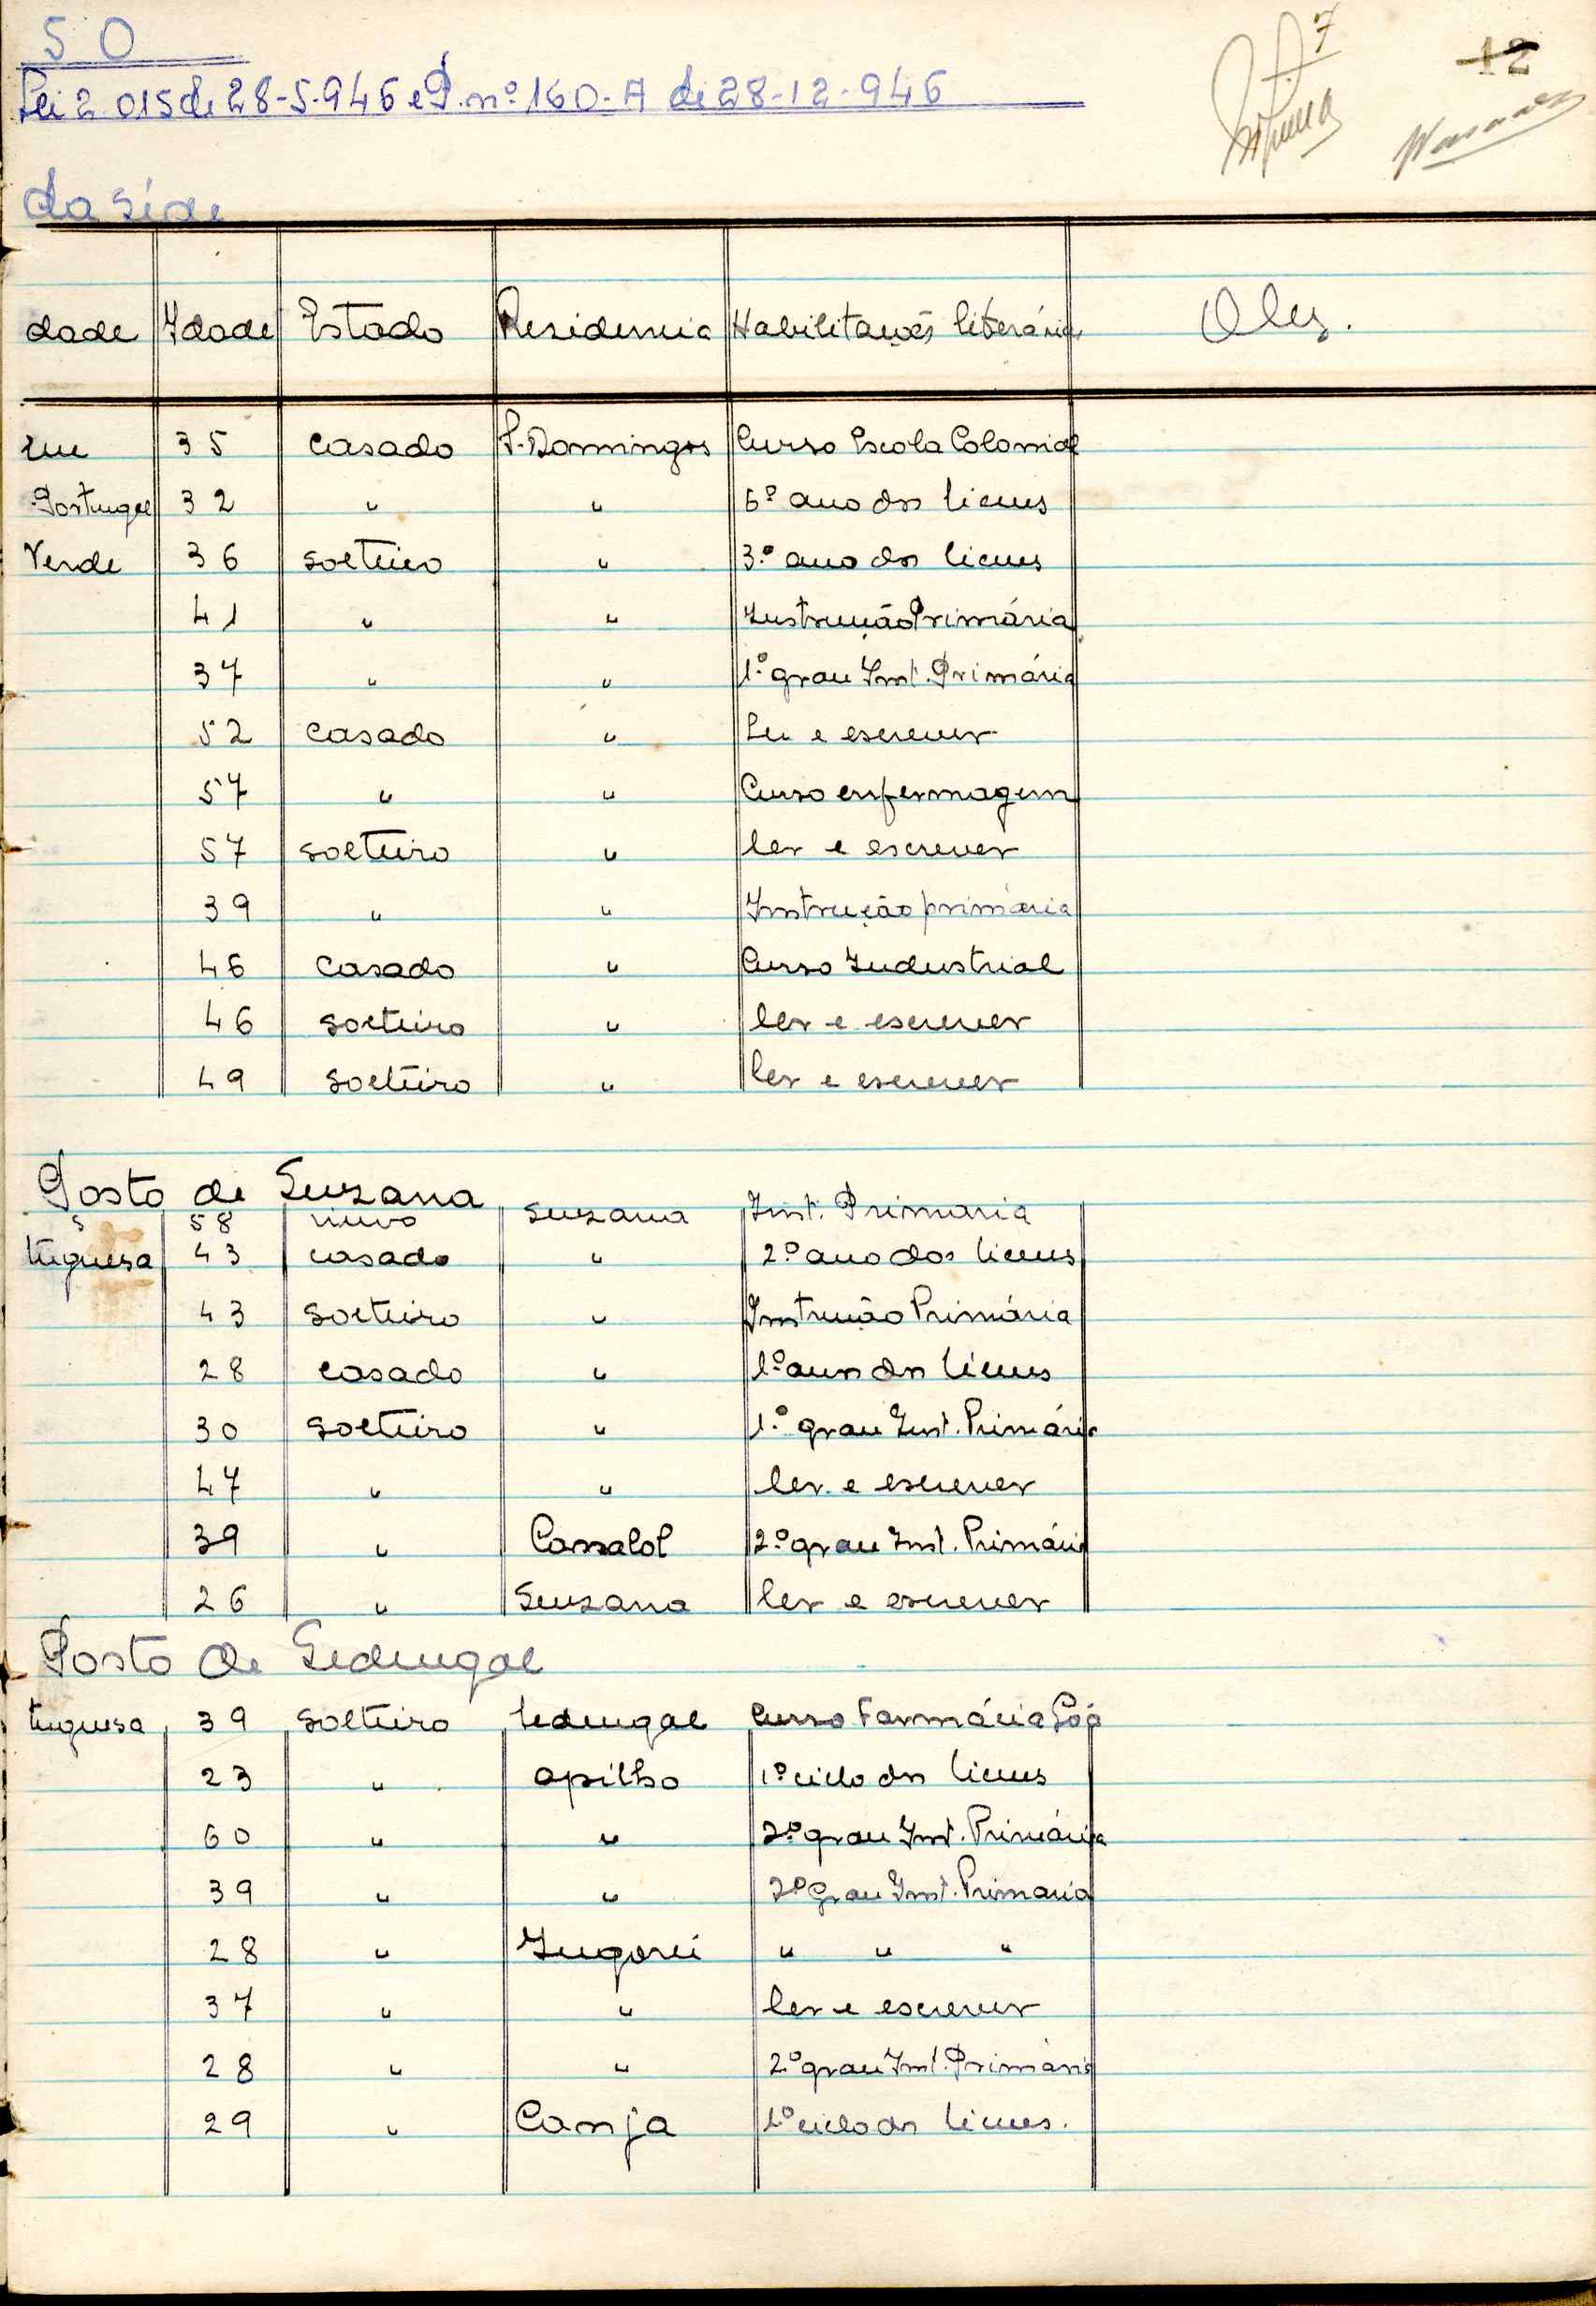 50
Lei 2.015 de 28-5-946 e P. nº 160-A de 28-12-946
7
12
da séde
dade Idade Estado Residencia Habilitações literárias Obs.
35 casado S. Domingos Curso Escola Colonial
Portugal 32 " " 6º ano dos liceus
Verde 36 solteiro " 3.º ano dos liceus
41 " " Instrução Primária
37 " " 1.º grau Inst. Primária
52 casado " Ler e escrever
57 " " Curso enfermagem
57 solteiro " ler e escrever
39 " " Instrução primária
46 casado " Curso Industrial
46 solteiro " ler e escrever
49 solteiro " ler e escrever
Posto de Suzana
58 viuvo Suzana Inst. Primaria
tuguesa 43 casado " 2.º ano dos liceus
43 solteiro " Instrução Primária
28 casado " 1.º ano dos liceus
30 solteiro " 1.º grau Inst. Primária
47 " " ler e escrever
39 " Cassalol 2.º grau Inst. Primária
26 " Suzana ler e escrever
Posto de Sedengal
tuguesa 39 solteiro Sedengal Curso Farmácia Gôa
23 " apilho 1º ciclo dos liceus
60 " " 2º grau Inst. Primária
39 " " 2º Grau Inst. Primaria
28 " Ingorei " " "
37 " " ler e escrever
28 " " 2º grau Inst. Primária
29 " Canja 1º ciclo dos liceus.